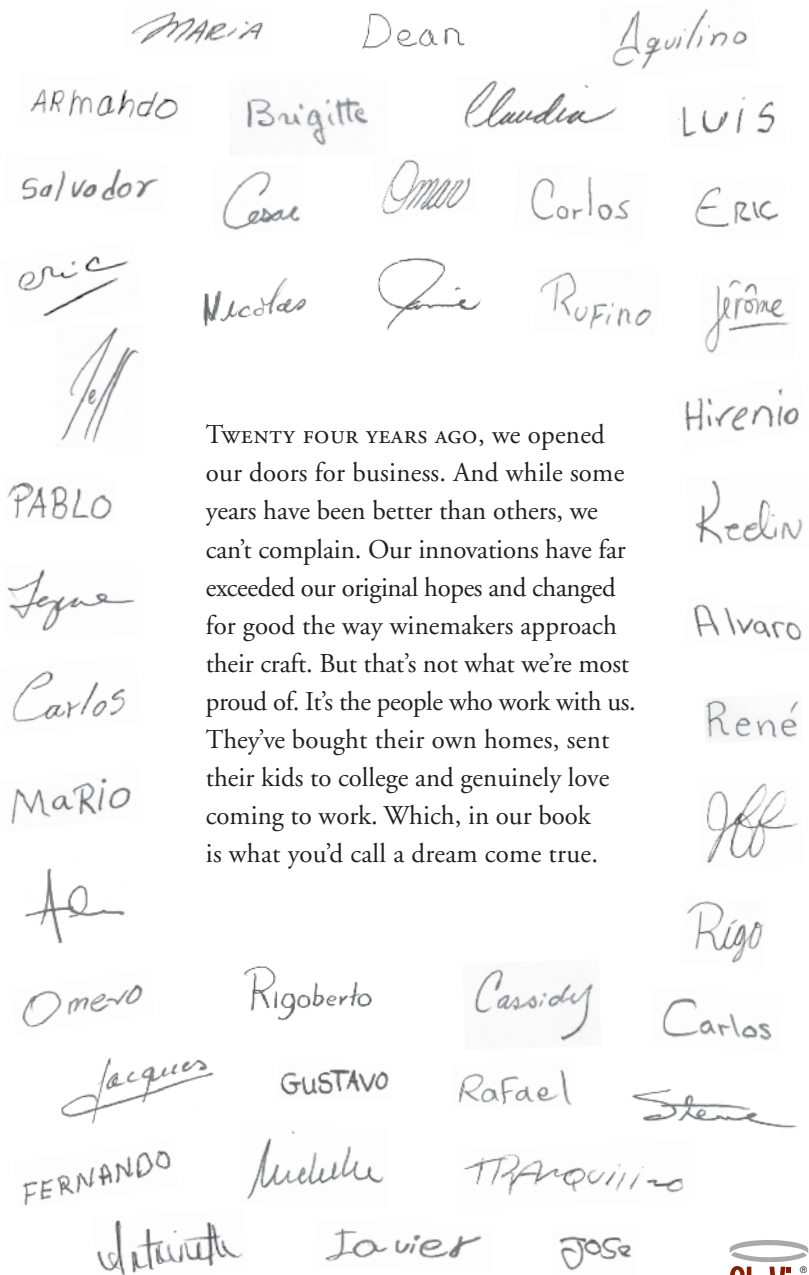 MARIA Dean Aquilino
ARmando Brigitte Claudia LUIS
Salvador Cesar Omar Carlos ERIC
eric Nicolas Jamie RuFino Jérôme
Jeff
Hirenio
TWENTY FOUR YEARS AGO, we opened
our doors for business. And while some
years have been better than others, we
can't complain. Our innovations have far
exceeded our original hopes and changed
for good the way winemakers approach
their craft. But that's not what we're most
proud of. It's the people who work with us.
They've bought their own homes, sent
their kids to college and genuinely love
coming to work. Which, in our book
is what you'd call a dream come true.
PABLO
Keelin
Alvaro
Carlos
René
MaRIO
Jeff
Rigo
Omero Rigoberto Cassidy Carlos
Jacques GUSTAVO RaFael Steve
FERNANDO Michelle TRANQUilino
Antoinette Javier JOSe